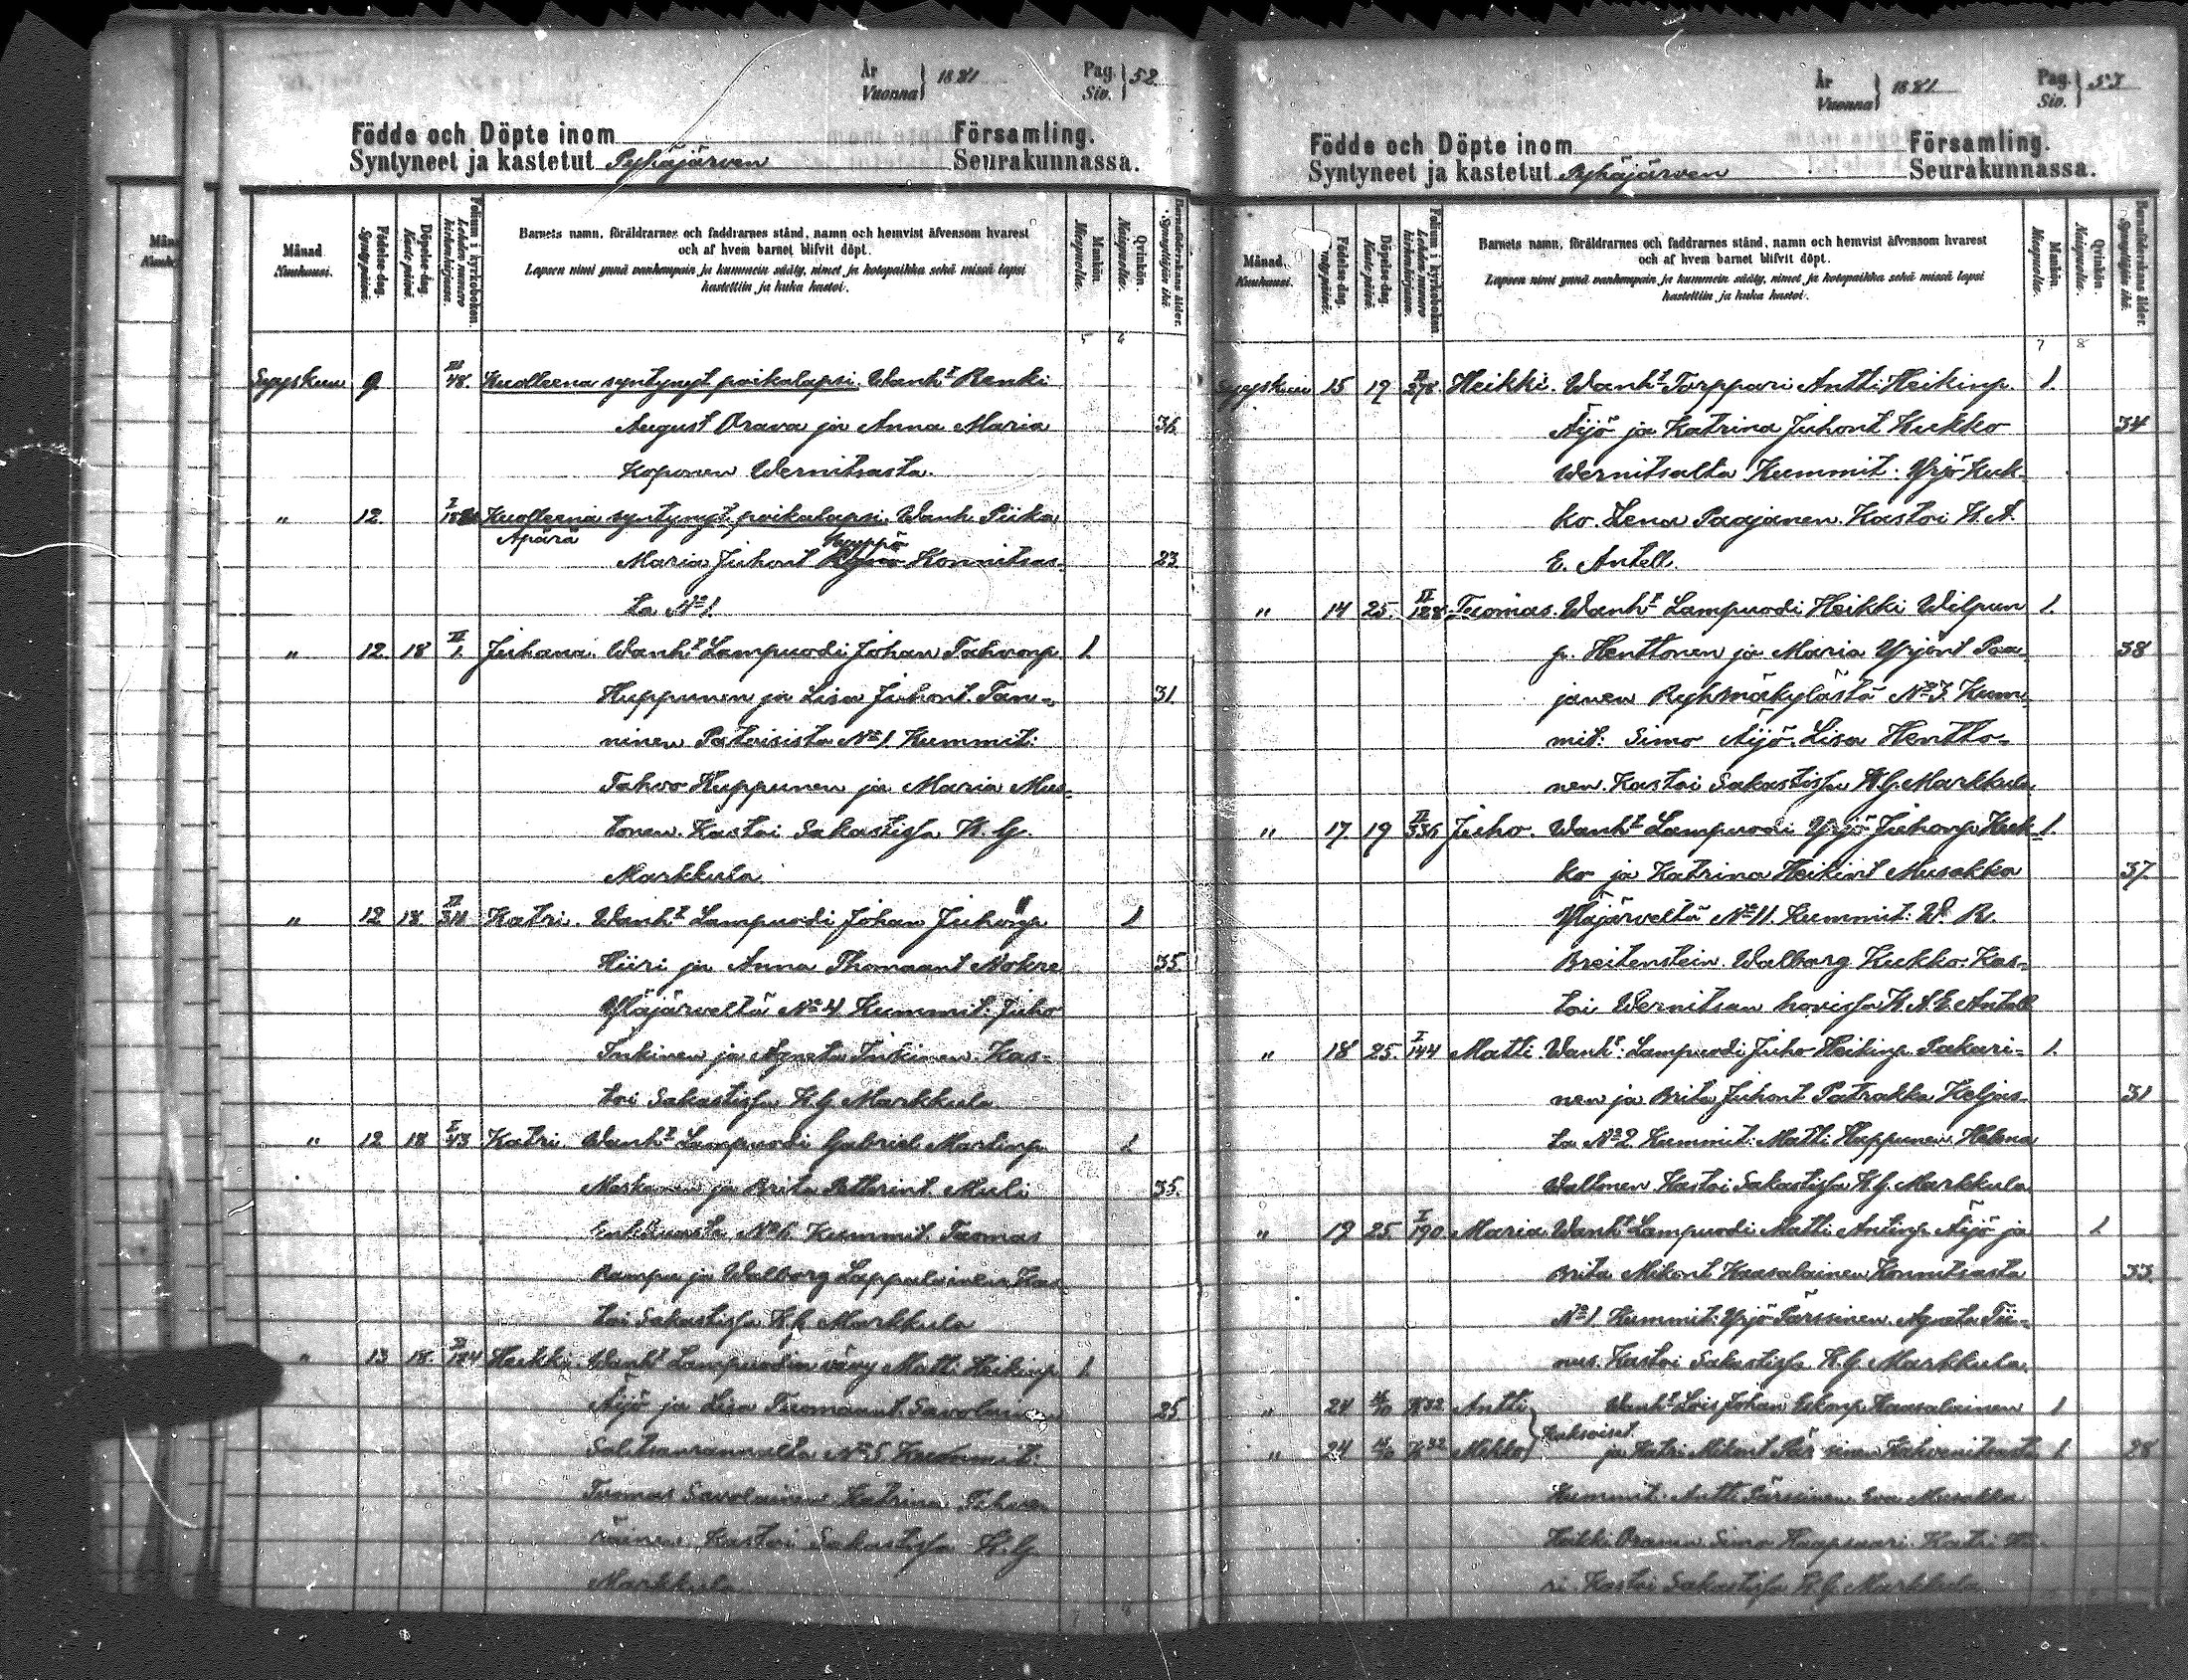 År
Vuonna } 1881 Pag.
Siv. } 52
Födde och Döpte inom Församling.
Syntyneet ja kastetut Pyhäjärven Seurakunnassa.
Månad. Kuukausi.
Födelse-dag. Syntypäivä.
Döpelse-dag. Kaste-päivä.
Folium i kyrkoboken. Lehden numero kirkonkirjassa.
Barnets namn, föräldrarnes och faddrarnes stånd, namn och hemvist äfvensom hvarest
och af hvem barnet blifvit döpt.
Lapsen nimi ynnä vanhempain ja kummein sääty, nimet ja kotopaikka sekä missä lapsi
kastettiin ja kuka kastoi.
Mankön. Miespuolia.
Qvinkön. Naispuolia.
Barnaföderskans ålder. Synnyttäjän ikä.
5 6
Syyskuu 9. 48. Kuolleena syntynyt poikalapsi. Wanht Renki
August Orava ja Anna Maria 36.
Koponen Wernitsasta.
" 12. Kuolleena syntynyt poikalapsi. Wanh. Piika
Äpärä
Maria Juhont Konnitsas- 23.
ta No 1.
" 12. 18 II 1. Juhana. Wanht Lampuodi Johan Tahvonp. 1.
Huppunen ja Lisa Juhont. Tan- 31.
ninen Patoisista No 1. Kummit:
Tahvo Huppunen ja Maria Mus-
tonen. Kastoi Sakastissa K. G.
Markkula.
" 12 18 Katri. Wanht Lampuodi Johan Juhonp 1
Hiiri ja Anna Thomaant Mokre 35.
Yläjärveltä No 4. Kummit: Juho
Inkinen ja Agneta Inkinen. Kas-
toi Sakastissa K. G. Markkula
" 12 18 I 43 Katri. Wanht Lampuodi Gabriel Martinp. 1.
Maskonen ja Brita Petterint. Muli 35.
No 6. Kummit. Tuomas
Rampu ja Walborg Lappalainen Kas-
toi Sakastissa K. G. Markkula
" 13 18. 184 Heikki. Wanht Lampuodin vävy Matti Heikinp 1.
Äijö ja Lisa Tuomaant. Savolainen 25.
Salitsanrannalta No 5. Kummit:
Tuomas Savolainen Katrina Tihve-
räinen. Kastoi Sakastissa K. G.
Markkula
År
Vuonna } 1881 Pag.
Siv. } 53
Födde och Döpte inom Församling.
Syntyneet ja kastetut Pyhäjärven Seurakunnassa.
Månad. Kuukausi.
Födelse-dag. Syntypäivä.
Döpelse-dag. Kaste-päivä.
Folium i kyrkoboken. Lehden numero kirkonkirjassa.
Barnets namn, föräldrarnes och faddrarnes stånd, namn och hemvist äfvensom hvarest
och af hvem barnet blifvit döpt.
Lapsen nimi ynnä vanhempain ja kummein sääty, nimet ja kotopaikka sekä missä lapsi
kastettiin ja kuka kastoi.
Mankön. Miespuolia.
Qvinkön. Naispuolia.
Barnaföderskans ålder. Synnyttäjän ikä.
7 8
Syyskuu 15 19 II 378. Heikki. Wanht Torppari Antti Heikinp. 1.
Äijö ja Katrina Juhont Kukko 34
Wernitsalta Kummit: Yrjö Kuk-
ko. Lena Paajanen. Kastoi K. A.
E. Antell.
" 14 25. II 188. Tuomas. Wanht Lampuodi Heikki Wilpun 1.
p. Henttonen ja Maria Yrjönt Paa- 38
janen Ryhmäkylästä No 3. Kum-
mit: Simo Äijö. Lisa Hentto-
nen. Kastoi Sakastissa K. G. Markkula
" 17. 19 II 336 Juho. Wanht Lampuodi Yrjö Juhonp. Kuk- 1.
ko ja Katrina Heikint Musakka 37.
Yläjärveltä No 11. Kummit: W. R.
Breitenstein. Walborg Kukko. Kas-
toi Wernitsan hovissa K. A. E. Antell
" 18 25. I 144 Matti. Wanht: Lampuodi Juho Heikinp. Pakari- 1.
nen ja Brita Juhont Patrakka Keljas- 31
ta No 2. Kummit: Matti Huppunen. Helena
Waltonen. Kastoi Sakastissa K. G. Markkula
" 19 25 I 190 Maria Wanht Lampuodi Matti Antinp. Äijö ja 1.
Brita Mikont Kaasalainen Konnitsasta 33.
No 1. Kummit: Yrjö Pärssinen. Agneta Tii-
nus. Kastoi Sakastissa. K. G. Markkula.
" 24 Antti Wanht Lois Johan Eskonp. Kaasalainen 1
Kaksoiset.
" 24 Mikko ja Katri Mikont Pärssinen Kahvenitsasta 1. 28
Kummit: Antti Pärssinen. Eva Musakka
Heikki Orava. Simo Haapsaari. Katri Hii-
ri. Kastoi Sakastissa K. G. Markkula